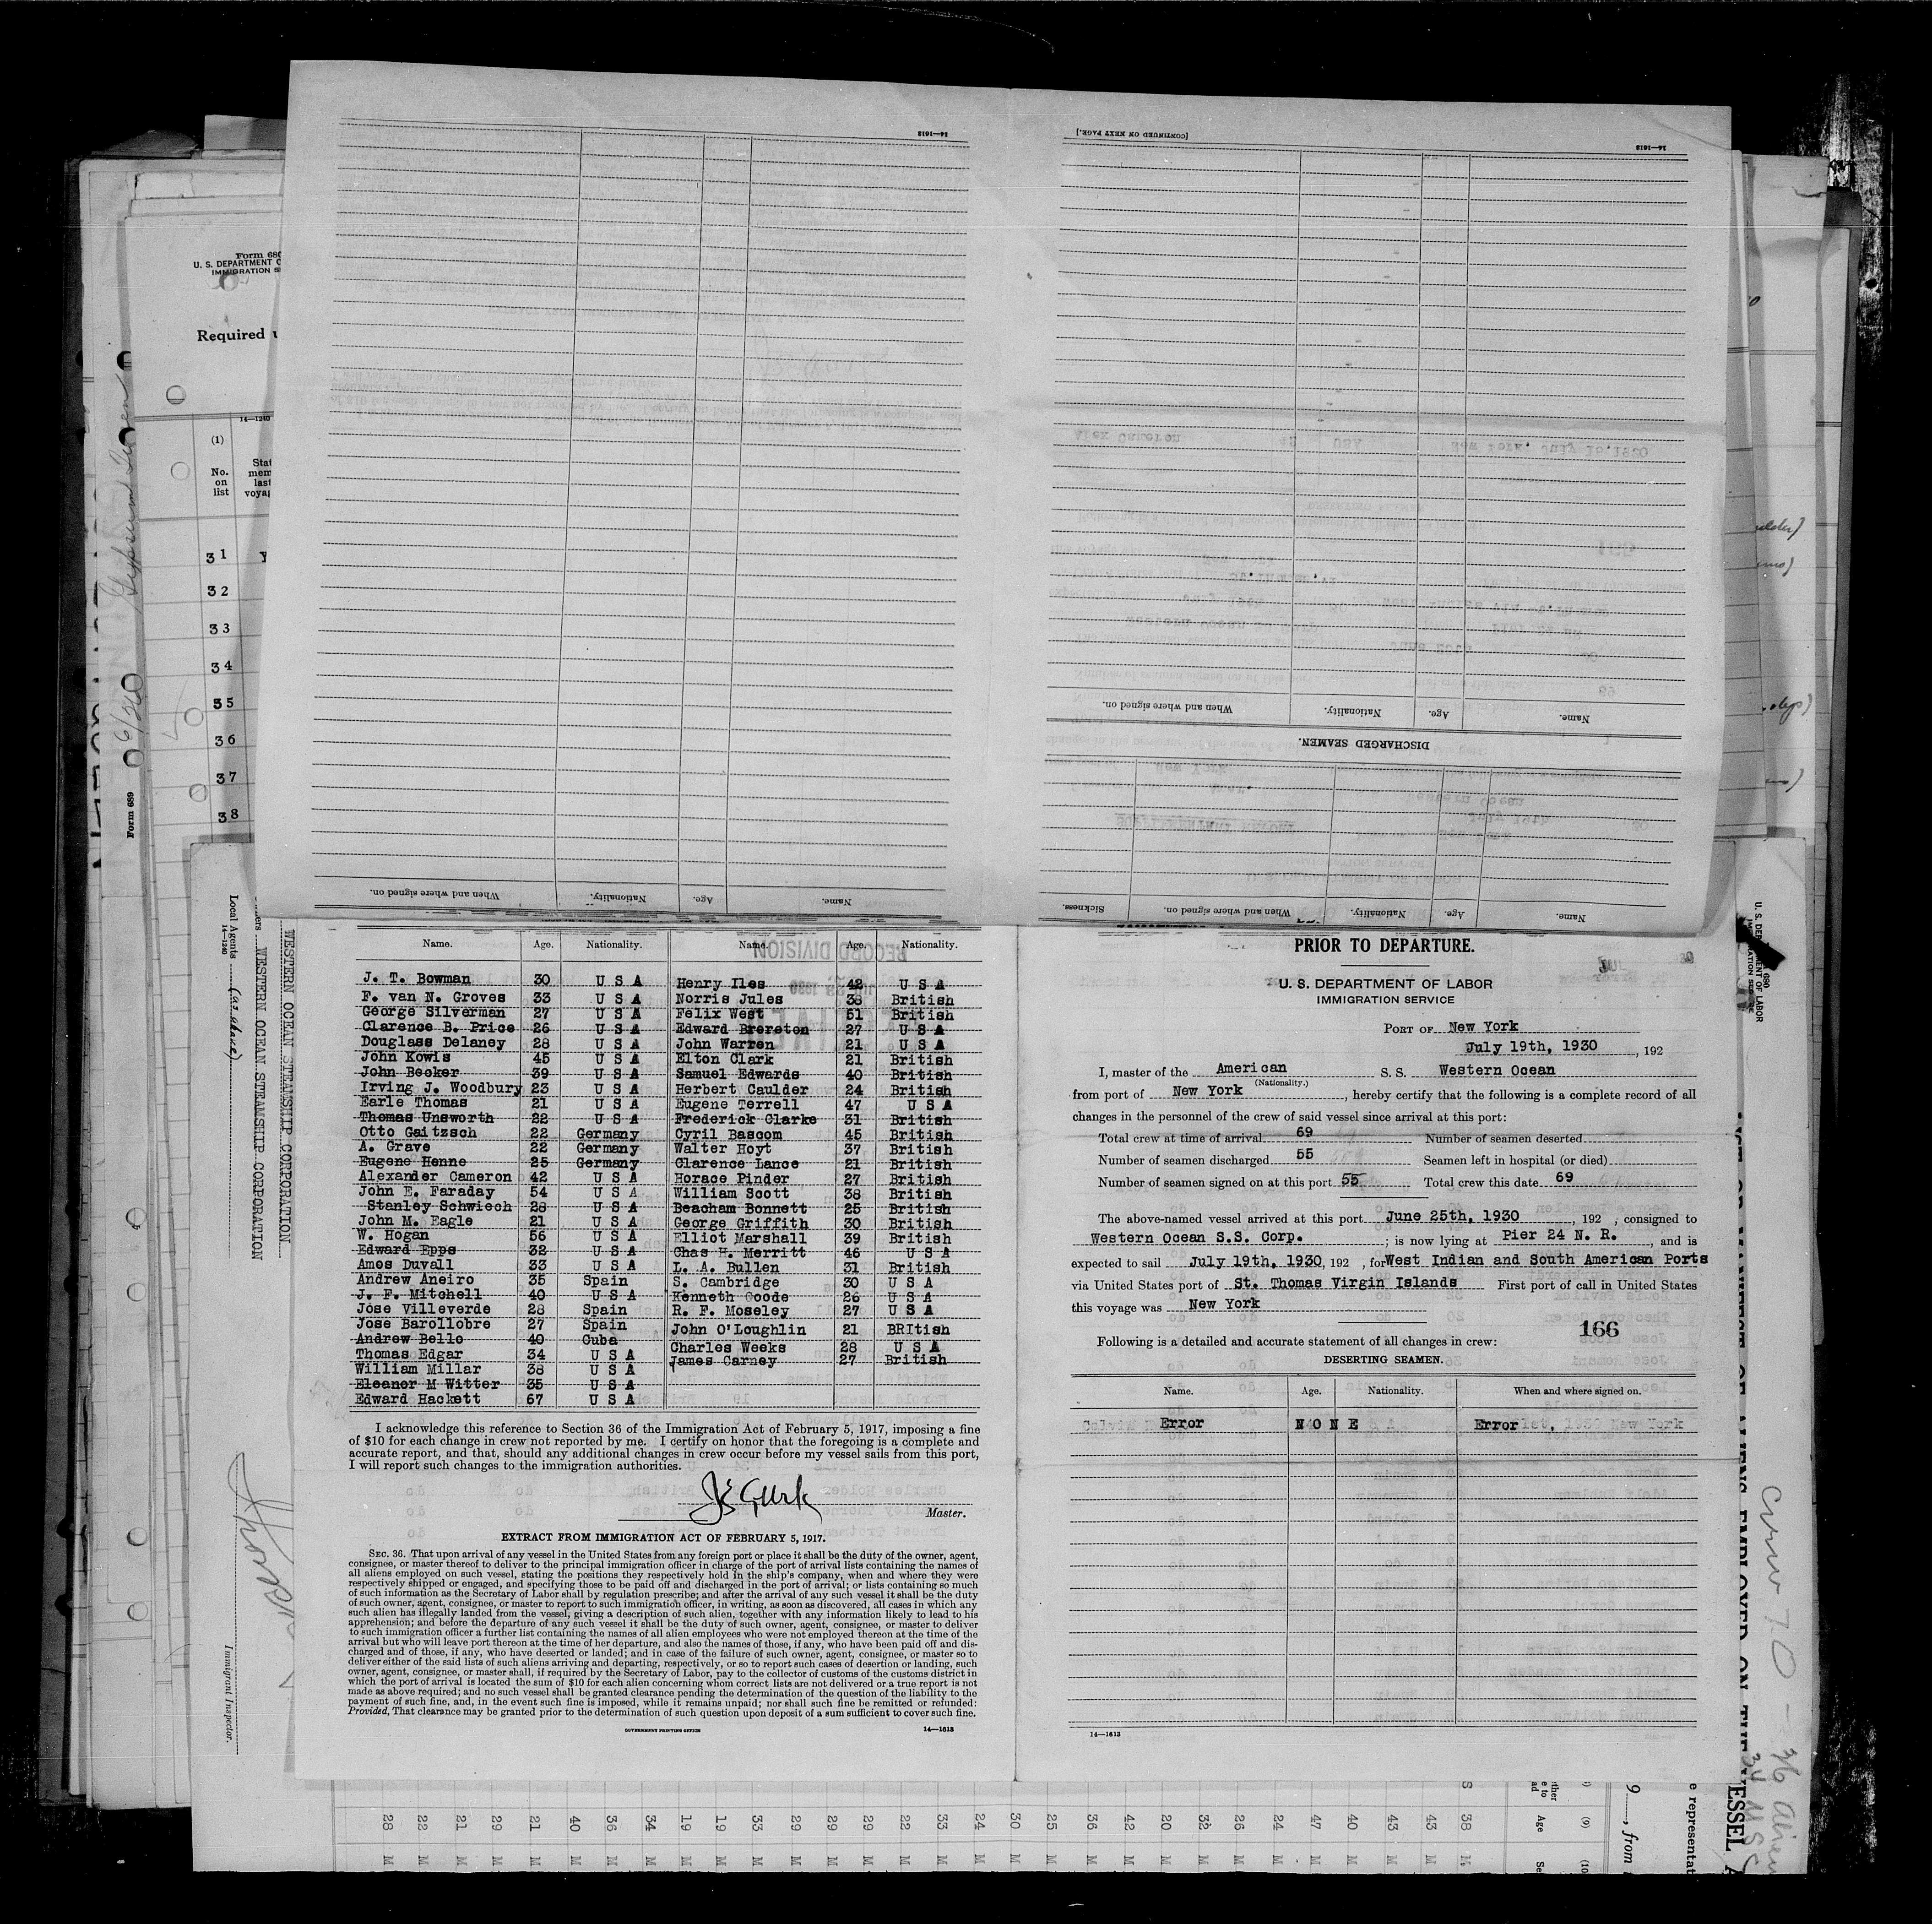 14—1613
[CONTINUED ON NEXT PAGE.]
14—1613
Name. Age. Nationality. When and where signed on.
DISCHARGED SEAMEN.
Name. Age. Nationality. When and where signed on.
Name. Age. Nationality. When and where signed on. Sickness.
Form 680
U. S. DEPARTMENT O
IMMIGRATION S
Required u
14—1240
(1)
No.
on
list
31
32
33
34
35
36
37
38
Form 689
Local Agents (as above)
14—1240
WESTERN OCEAN STEAMSHIP CORPORATION
WESTERN OCEAN STEAMSHIP CORPORATION
Immigrant Inspector.
RECORD DIVISION
Name. Age. Nationality. Name. Age. Nationality.
J. T. Bowman 30 U S A Henry Iles 42 U S A
F. van N. Groves 33 U S A Norris Jules 38 British
George Silverman 27 U S A Felix West 51 British
Clarence B. Price 26 U S A Edward Brereton 27 U S A
Douglass Delaney 28 U S A John Warren 21 U S A
John Kowis 45 U S A Elton Clark 21 British
John Becker 39 U S A Samuel Edwards 40 British
Irving J. Woodbury 23 U S A Herbert Caulder 24 British
Earle Thomas 21 U S A Eugene Terrell 47 U S A
Thomas Unsworth 22 U S A Frederick Clarke 31 British
Otto Gaitzsch 22 Germany Cyril Bascom 45 British
A. Grave 22 Germany Walter Hoyt 37 British
Eugene Henne 25 Germany Clarence Lance 21 British
Alexander Cameron 42 U S A Horace Pinder 27 British
John E. Faraday 54 U S A William Scott 38 British
Stanley Schwiech 28 U S A Beacham Bonnett 25 British
John M. Eagle 21 U S A George Griffith 30 British
W. Hogan 56 U S A Elliot Marshall 39 British
Edward Epps 32 U S A Chas H. Merritt 46 U S A
Amos Duvall 33 U S A L. A. Bullen 31 British
Andrew Aneiro 35 Spain S. Cambridge 30 U S A
J. F. Mitchell 40 U S A Kenneth Goode 26 U S A
Jose Villeverde 28 Spain R. F. Moseley 27 U S A
Jose Barollobre 27 Spain John O'Loughlin 21 BRItish
Andrew Bello 40 Cuba Charles Weeks 28 U S A
Thomas Edgar 34 U S A James Carney 27 British
William Millar 38 U S A
Eleanor M Witter 35 U S A
Edward Hackett 67 U S A
I acknowledge this reference to Section 36 of the Immigration Act of February 5, 1917, imposing a fine
of $10 for each change in crew not reported by me. I certify on honor that the foregoing is a complete and
accurate report, and that, should any additional changes in crew occur before my vessel sails from this port,
I will report such changes to the immigration authorities.
Master.
EXTRACT FROM IMMIGRATION ACT OF FEBRUARY 5, 1917.
SEC. 36. That upon arrival of any vessel in the United States from any foreign port or place it shall be the duty of the owner, agent,
consignee, or master thereof to deliver to the principal immigration officer in charge of the port of arrival lists containing the names of
all aliens employed on such vessel, stating the positions they respectively hold in the ship's company, when and where they were
respectively shipped or engaged, and specifying those to be paid off and discharged in the port of arrival; or lists containing so much
of such information as the Secretary of Labor shall by regulation prescribe; and after the arrival of any such vessel it shall be the duty
of such owner, agent, consignee, or master to report to such immigration officer, in writing, as soon as discovered, all cases in which any
such alien has illegally landed from the vessel, giving a description of such alien, together with any information likely to lead to his
apprehension; and before the departure of any such vessel it shall be the duty of such owner, agent, consignee, or master to deliver
to such immigration officer a further list containing the names of all alien employees who were not employed thereon at the time of the
arrival but who will leave port thereon at the time of her departure, and also the names of those, if any, who have been paid off and dis-
charged and of those, if any, who have deserted or landed; and in case of the failure of such owner, agent, consignee, or master so to
deliver either of the said lists of such aliens arriving and departing, respectively, or so to report such cases of desertion or landing, such
owner, agent, consignee, or master shall, if required by the Secretary of Labor, pay to the collector of customs of the customs district in
which the port of arrival is located the sum of $10 for each alien concerning whom correct lists are not delivered or a true report is not
made as above required; and no such vessel shall be granted clearance pending the determination of the question of the liability to the
payment of such fine, and, in the event such fine is imposed, while it remains unpaid; nor shall such fine be remitted or refunded:
Provided, That clearance may be granted prior to the determination of such question upon deposit of a sum sufficient to cover such fine.
GOVERNMENT PRINTING OFFICE 14—1613
PRIOR TO DEPARTURE.
U. S. DEPARTMENT OF LABOR
IMMIGRATION SERVICE
PORT OF New York
July 19th, 1930, 192
I, master of the American S. S. Western Ocean
(Nationality.)
from port of New York, hereby certify that the following is a complete record of all
changes in the personnel of the crew of said vessel since arrival at this port:
Total crew at time of arrival 69 Number of seamen deserted
Number of seamen discharged 55 Seamen left in hospital (or died)
Number of seamen signed on at this port 55 Total crew this date 69
The above-named vessel arrived at this port June 25th, 1930, 192 , consigned to
Western Ocean S.S. Corp. ; is now lying at Pier 24 N. R., and is
expected to sail July 19th, 1930, 192 , for West Indian and South American Ports
via United States port of St. Thomas Virgin Islands First port of call in United States
this voyage was New York
166
Following is a detailed and accurate statement of all changes in crew:
DESERTING SEAMEN.
Name. Age. Nationality. When and where signed on.
Error N O N E Error
14—1613
crew 70 - 36 aliens
34 U S
28 22 21 29 21 40 36 34 19 19 33 29 29 29 22 33 24 30 25 36 42 20 32 26 24 47 40 43 43 38
Age
(9)